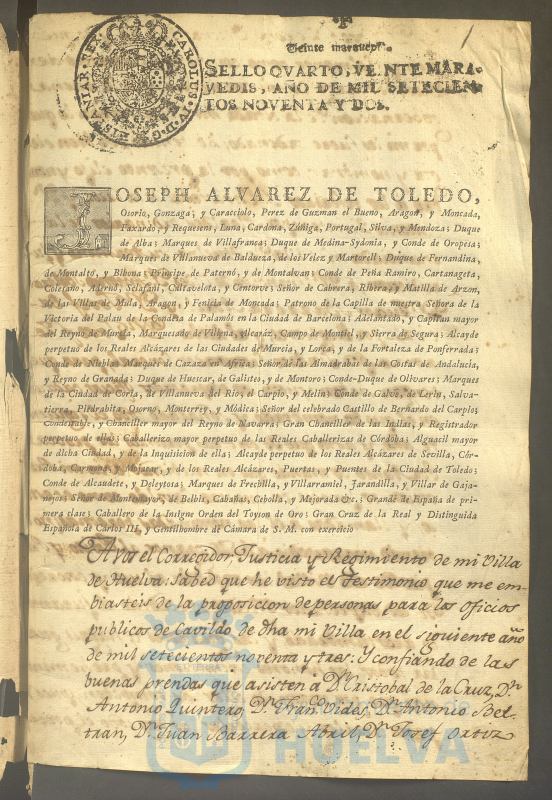 1
Veinte maravedis.
SELLO QVARTO, VEINTE MARA-
VEDIS, AÑO DE MIL SETECIEN-
TOS NOVENTA Y DOS.
CAROLUS IV D G HISPANIAR REX
JOSEPH ALVAREZ DE TOLEDO,
Osorio, Gonzaga; y Caracciolo, Perez de Guzman el Bueno, Aragon, y Moncada,
Faxardo, y Requesens, Luna, Cardona, Zúñiga, Portugal, Silva, y Mendoza; Duque
de Alba; Marques de Villafranca; Duque de Medina-Sydonia, y Conde de Oropesa;
Marques de Villanueva de Baldueza, de los Velez y Martorell; Duque de Fernandina,
de Montalto, y Bibona; Principe de Paternó, y de Montalvan; Conde de Peña Ramiro, Cartanageta,
Colesano, Adernó, Selafani, Caltavelota, y Centorve; Señor de Cabrera, Ribera, y Matilla de Arzon,
de las Villas de Mula, Aragon, y Fenicia de Moncada; Patrono de la Capilla de nuestra Señora de la
Victoria del Palau de la Condesa de Palamós en la Ciudad de Barcelona; Adelantado, y Capitan mayor
del Reyno de Murcia, Marquesado de Villena, Alcaráz, Campo de Montiel, y Sierra de Segura; Alcayde
perpetuo de los Reales Alcázares de las Ciudades de Murcia, y Lorca, y de la Fortaleza de Ponferrada;
Conde de Niebla; Marques de Cazaza en Africa; Señor de las Almadrabas de las Costas de Andalucia,
y Reyno de Granada; Duque de Huescar, de Galisteo, y de Montoro; Conde-Duque de Olivares; Marques
de la Ciudad de Coria, de Villanueva del Rio, el Carpio, y Melin; Conde de Galve, de Lerin, Salva-
tierra, Piedrabita, Osorno, Monterrey, y Módica; Señor del celebrado Castillo de Bernardo del Carpio;
Condestable, y Chanciller mayor del Reyno de Navarra; Gran Chanciller de las Indias, y Registrador
perpetuo de ellas; Caballerizo mayor perpetuo de las Reales Caballerizas de Córdoba; Alguacil mayor
de dicha Ciudad, y de la Inquisicion de ella; Alcayde perpetuo de los Reales Alcázares de Sevilla, Cór-
doba, Carmona, y Mojacar, y de los Reales Alcázares, Puertas, y Puentes de la Ciudad de Toledo;
Conde de Alcaudete, y Deleytosa; Marques de Frechilla, y Villarramiel, Jarandilla, y Villar de Gaja-
nejos; Señor de Montemayor, de Belbis, Cabañas, Cebolla, y Mejorada &c. Grande de España de pri-
mera clase; Caballero de la Insigne Orden del Toyson de Oro; Gran Cruz de la Real y Distinguida
Española de Carlos III, y Gentilhombre de Cámara de S. M. con exercicio
A vos el Corregidor, Justicia y Regimiento de mi Villa
de Huelva: Sabed que he visto el Testimonio que me em-
biasteis de la proposicion de personas para los oficios
publicos de Cavildo de dha mi Villa en el siguiente año
de mil setecientos noventa y tres: Y confiando de las
buenas prendas que asisten à Dn. Cristobal de la Cruz, Dn.
Antonio Quintero, Dn. Franco. Vides, Dn. Antonio Bel-
tran, Dn. Juan Barrera Abril, Dn. Josef Ortiz
HUELVA